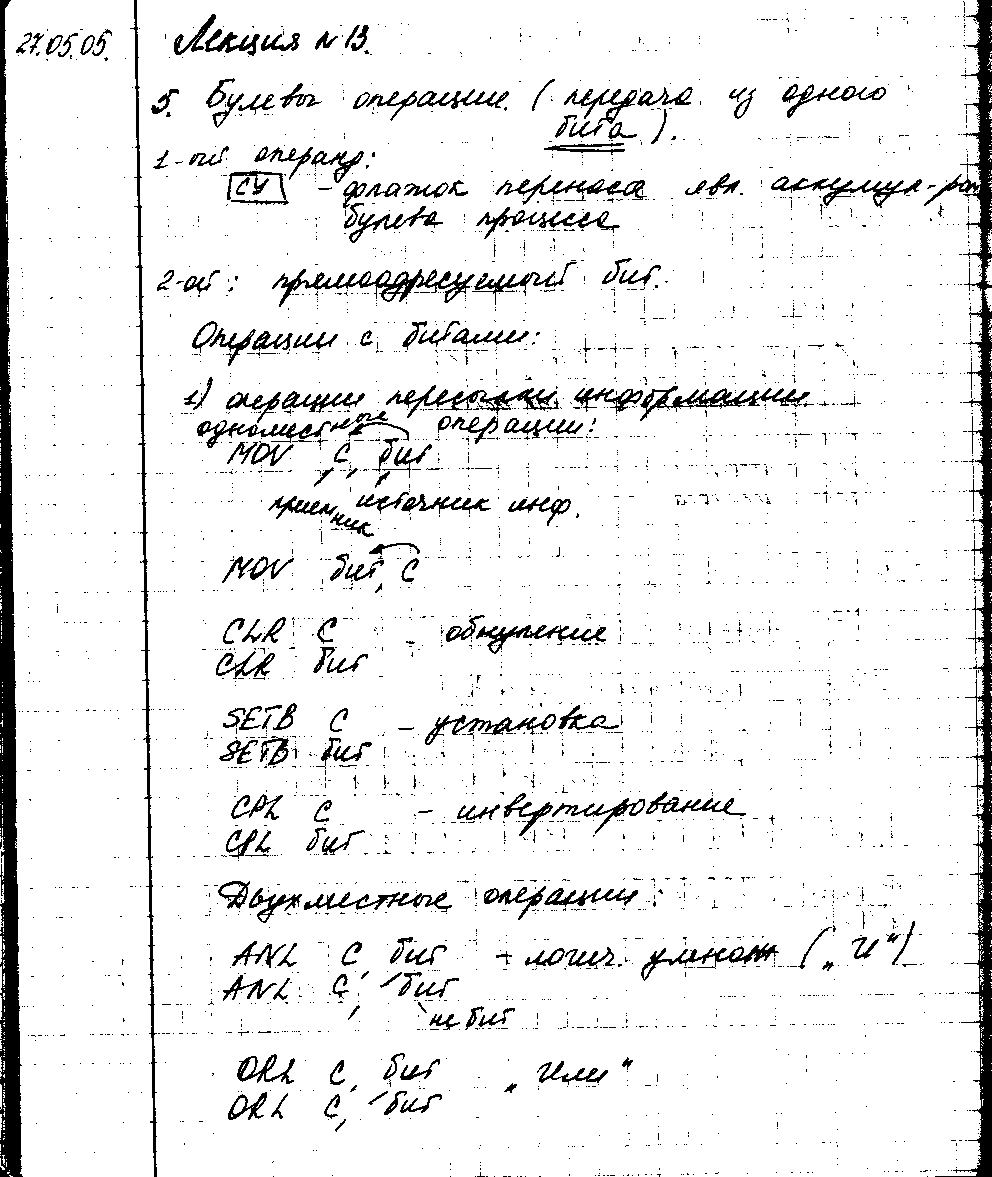 27.05.05. Лекция № 13.
5. Булевы операции. (передача из одного
бита).
1-ый операнд:
CY - флажок переноса явл. аккумул-ром
булева процесса
2-ой: прямоадресуемый бит.
Операции с битами:
1) операции пересылки информации
одноместные операции:
MOV C, бит
приемник источник инф.
MOV бит, C
CLR C - обнуление
CLR бит
SETB C - установка
SETB бит
CPL C - инвертирование
CPL бит
Двухместные операции:
ANL C, бит - логич. умнож („И“)
ANL C, /бит
не бит
ORL C, бит „Или“
ORL C, /бит